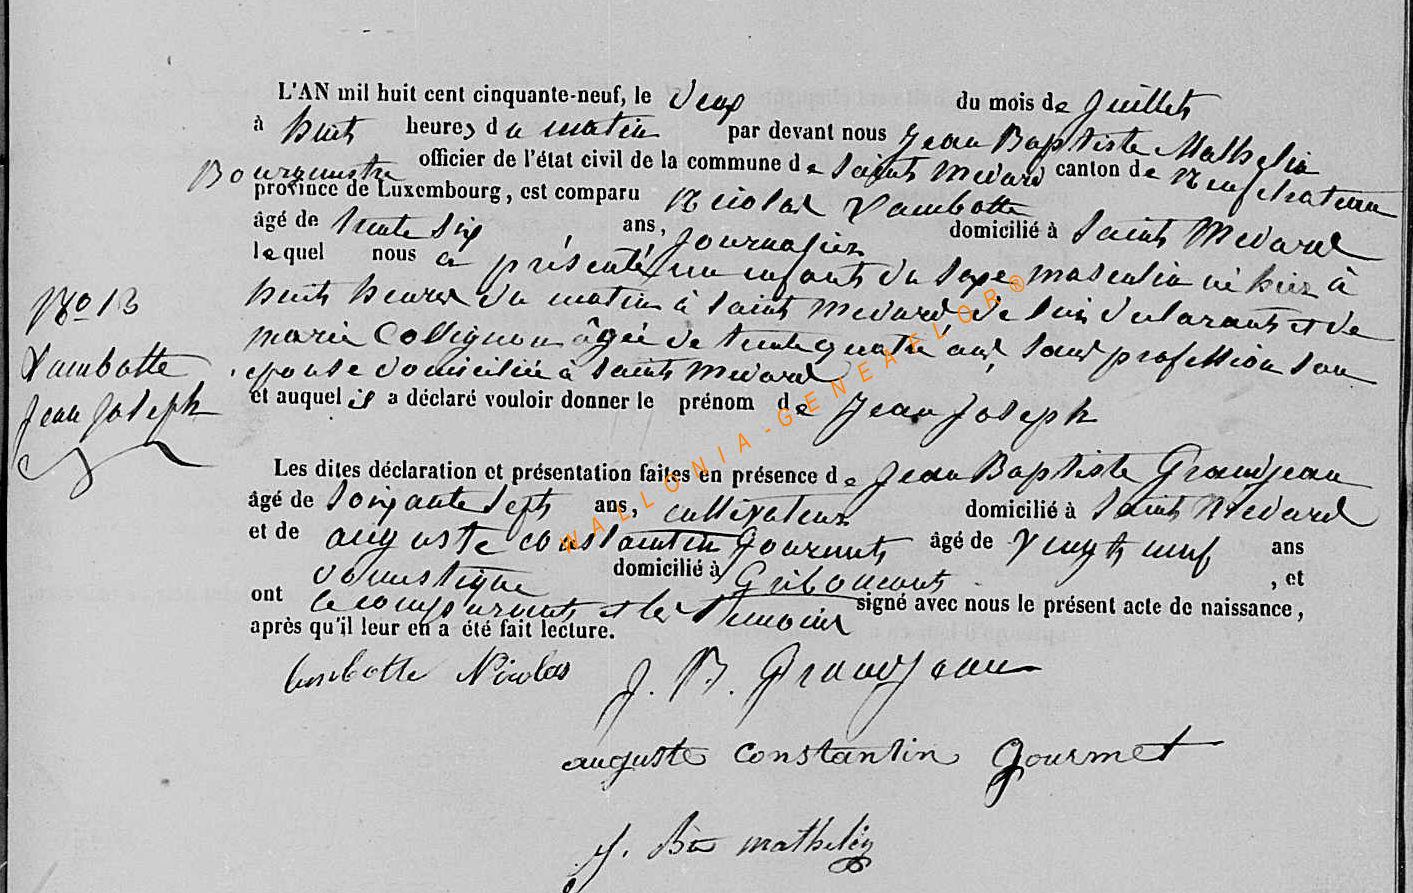 L'AN mil huit cent cinquante-neuf, le deux du mois de Juillet
à huit heures du matin par devant nous Jean Baptiste Mathelin
Bourgmestre officier de l'état civil de la commune de Saint Médard canton de Neufchateau
province de Luxembourg, est comparu Nicolas Lambotte
âgé de trente six ans, journalier domicilié à Saint Medard
lequel nous a présenté un enfant du sexe masculin né hier à
huit heures du matin à Saint Medard, de lui déclarant et de
marie Collignon âgée de trente quatre ans, sans profession son
epouse domiciliée à Saint Medard
et auquel il a déclaré vouloir donner le prénom de Jean Joseph
No 13
Lambotte
Jean Joseph
Les dites déclaration et présentation faites en présence de Jean Baptiste Grandjean
âgé de Soixante Sept ans, cultivateur domicilié à Saint Medard
et de auguste constantin Gourmet âgé de vingt neuf ans
domestique domicilié à Gribomont, et
ont le comparant et les temoins signé avec nous le présent acte de naissance,
après qu'il leur en a été fait lecture.
Lambotte Nicolas J. B. Grandjean
auguste constantin Gourmet
J. Bte mathelin
WALLONIA-GENEAFLOR®